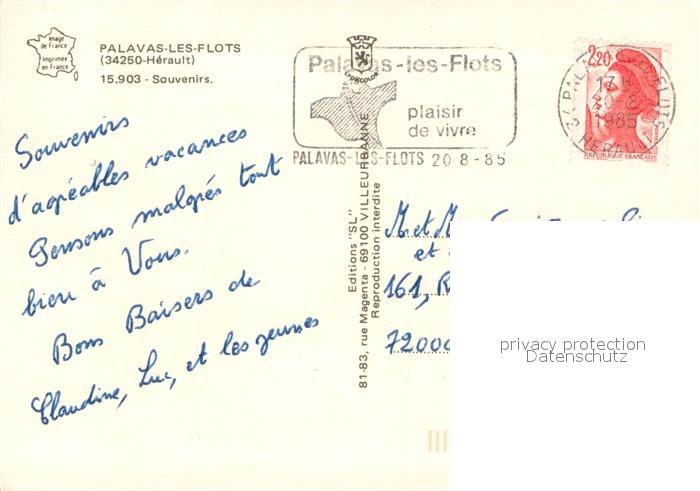 Image
de France
Imprimée
en France
PALAVAS-LES-FLOTS
(34250-Hérault)
15.903 - Souvenirs.
LYONCOLOR
Palavas-les-Flots
plaisir
de vivre
PALAVAS-LES-FLOTS 20 8-85
2,20
34 PALAVAS LES FLOTS
17 H
20-8
1985
HERAULT
REPUBLIQUE FRANÇAISE
Souvenirs
d'agréables vacances
Pensons malgrés tout
bien à Vous.
Bons Baisers de
Claudine, Luc, et les jeunes
Editions "SL"
81-83, rue Magenta - 69100 VILLEURBANNE
Reproduction interdite
M et M
et
161, R
72000
privacy protection
Datenschutz